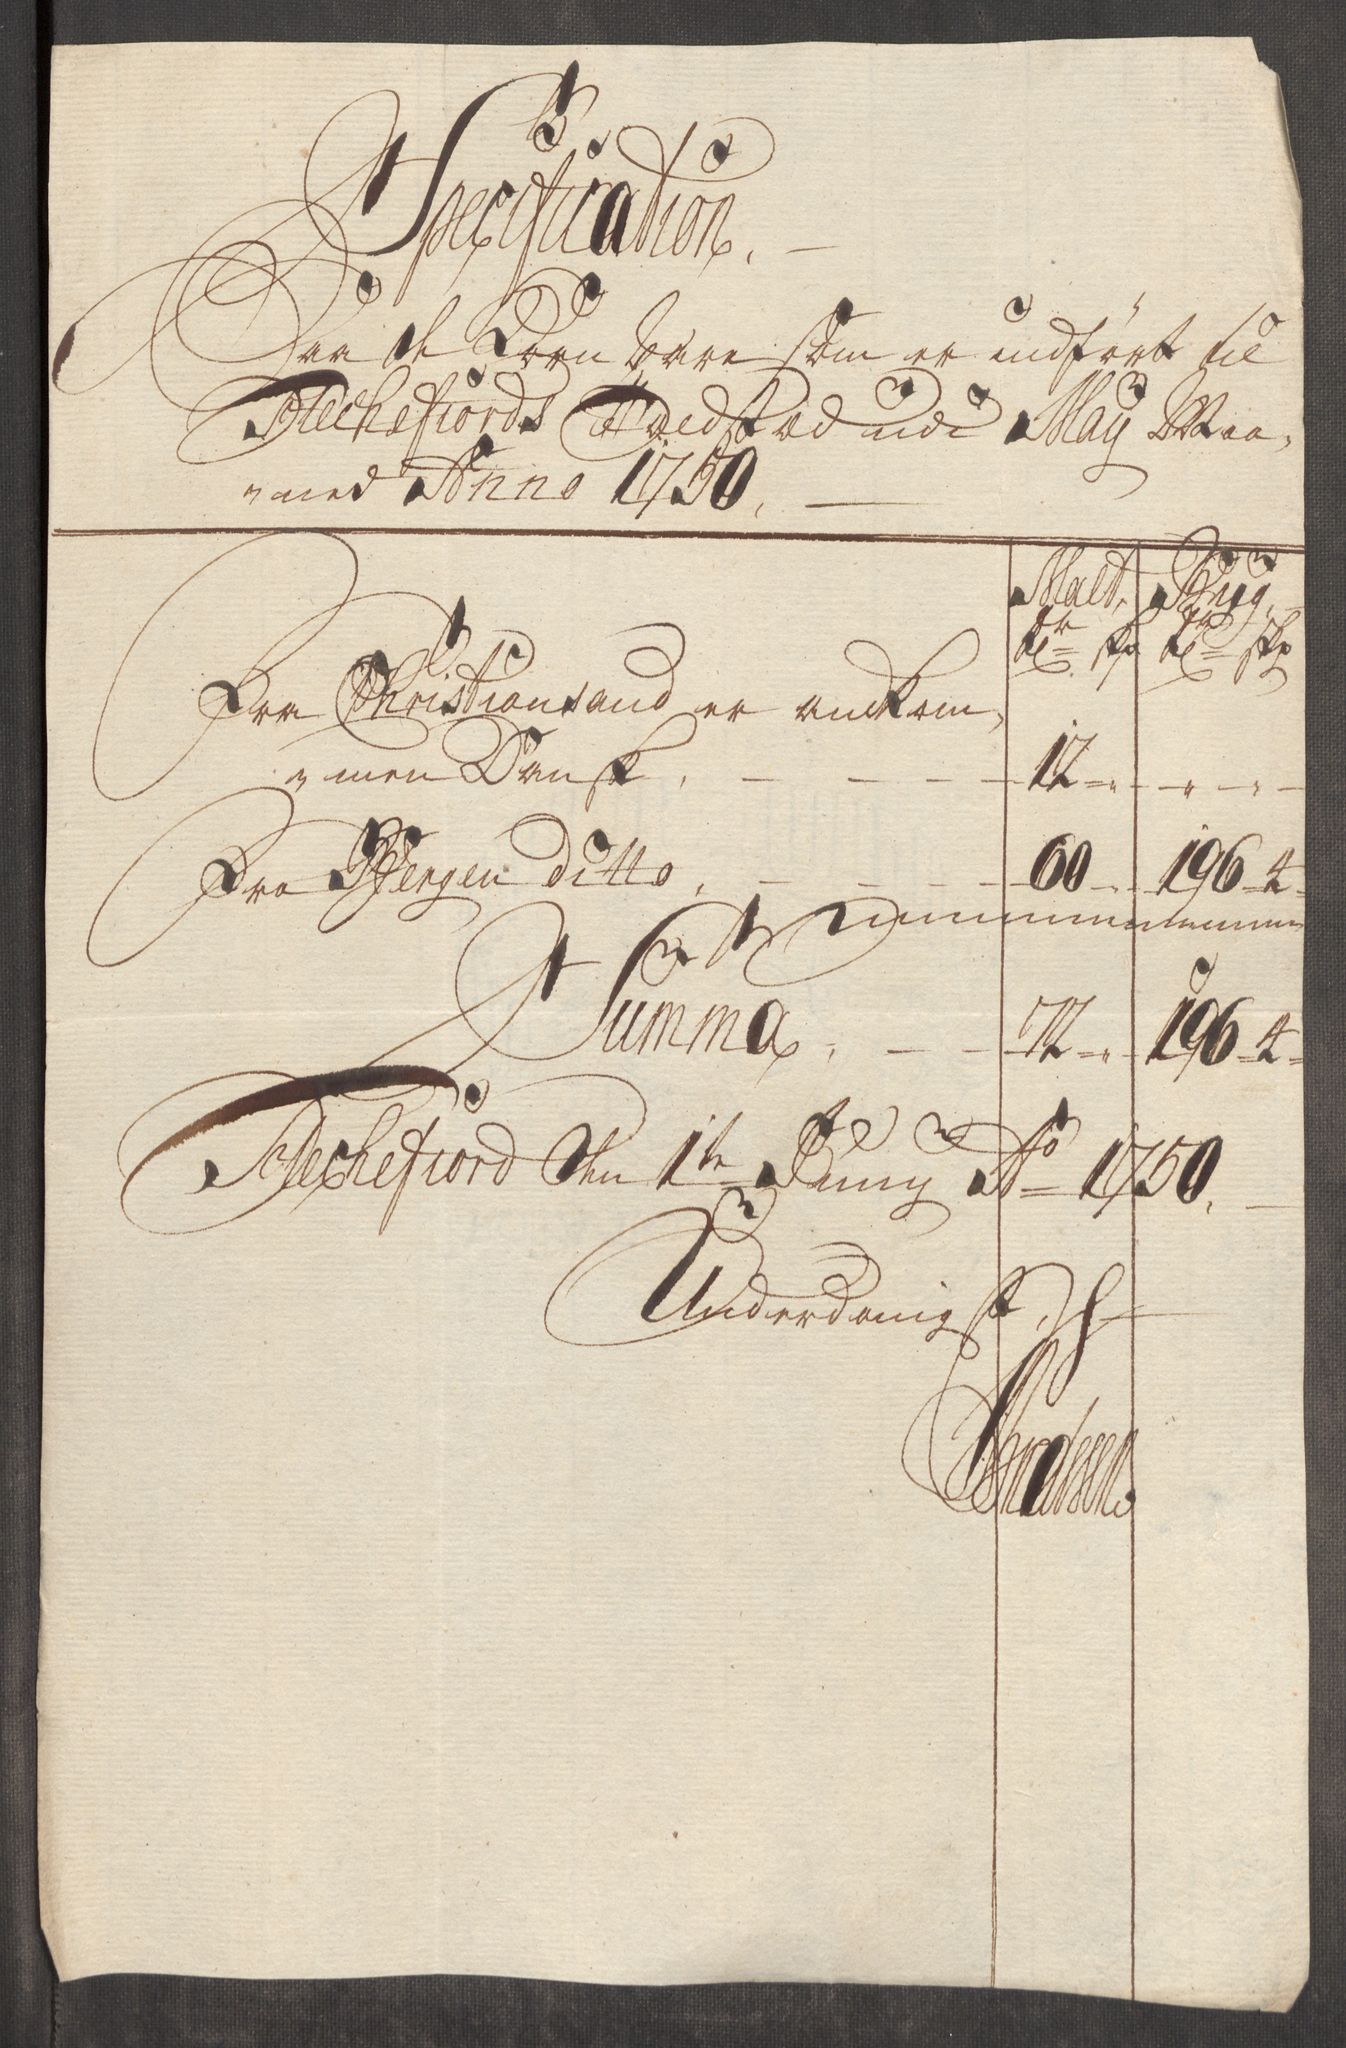 Specification.
Paa de Korn Vare som er indført til
Flechefiords Toldsted udi May Maa-
ned Anno 1750.
Malt, Rug,
tr skp tr skp
Fra Christiansand er ankom-
men Dansk. - - - 12 - " - " - " -
Fra Bergen ditto. - - - 60 - " - 196 - 4 -
Summa. - - 72 - " - 196 - 4 -
Flechefiord den 1te Juny Ao 1750.
Underdanigst